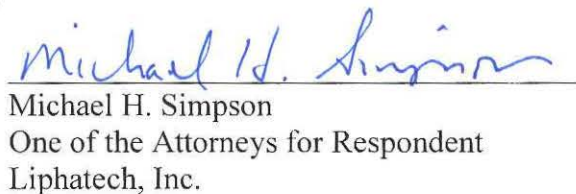 Michael H. Simpson
Michael H. Simpson
One of the Attorneys for Respondent
Liphatech, Inc.